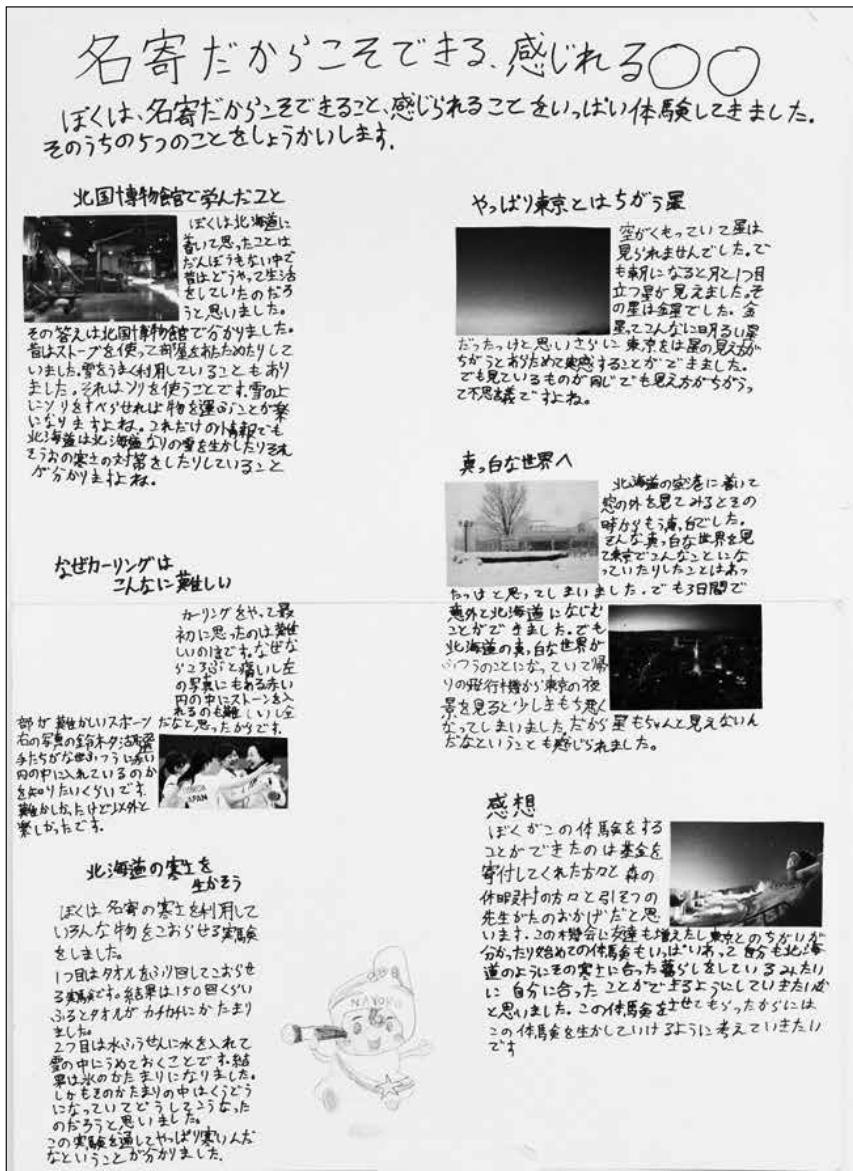 名寄だからこそできる、感じれる〇〇
ぼくは、名寄だからこそできること、感じられることをいっぱい体験してきました。
そのうちの5つのことをしょうかいします。
北国博物館で学んだこと
ぼくは北海道に
着いて思ったことは
だんぼうもない中で
昔はどうやって生活
をしていたのだろ
うと思いました。
その答えは北国博物館で分かりました。
昔はストーブを使って部屋をあたためたりして
いました。雪をうまく利用していることもあり
ました。それはソリを使うことです。雪の上
にソリをすべらせれば物を運ぶことが楽
になりますよね。これだけの情報でも
北海道は北海道なりの雪を生かしたりそれ
そうおの寒さの対策をしたりしていること
が分かりますよね。
なぜカーリングは
こんなに難しい
カーリングをやって最
初に思ったのは難
しいのほです。なぜな
らころぶと痛いし左
の写真にもある赤い
円の中にストーンを入
れるのも難しいし全
部が難かしいスポーツだなと思ったからです。
右の写真の鈴木夕湖選
手たちがなぜふつうに赤い
円の中に入れているのか
を知りたいくらいです。
難かしかったけど以外と
楽しかったです。
北海道の寒さを
生かそう
ぼくは名寄の寒さを利用して
いろんな物をこおらせる実験
をしました。
1つ目はタオルをふり回してこおらせ
る実験です。結果は150回くらい
ふるとタオルがカチカチにかたまり
ました。
2つ目は水ふうせんに水を入れて
雪の中にうめておくことです。結
果は氷のかたまりになりました。
しかもそのかたまりの中はくうどう
になっていてどうしてこうなった
のだろうと思いました。
この実験を通してやっぱり寒いんだ
なということが分かりました。
NAYORO
やっぱり東京とはちがう星
空がくもっていて星は
見られませんでした。で
も朝になると月と1つ目
立つ星が見えました。そ
の星は金星でした。金
星ってこんなに明るい星
だったっけと思いさらに東京をは星の見え方が
ちがうとあらためて実感することができました。
でも見ているものが同じでも見え方がちがうっ
て不思議ですよね。
真っ白な世界へ
北海道の空港に着いて
窓の外を見てみるとその
時からもう真っ白でした。
そんな真っ白な世界を見
て東京でこんなことにな
っていたりしたことはあっ
たっけと思ってしまいました。でも3日間で
意外と北海道になじむ
ことができました。でも
北海道の真っ白な世界が
ふつうのことになっていて帰
りの飛行機から東京の夜
景を見ると少しきもち悪く
なってしまいました。だから星もちゃんと見えないん
だなということも感じられました。
感想
ぼくがこの体験をする
ことができたのは基金を
寄付してくれた方々と森の
休暇村の方々と引そつの
先生がたのおかげだと思
います。この機会に友達も増えたし東京とのちがいが
分かったり始めての体験もいっぱいあって自分も北海
道のようにその寒さに合った暮らしをしているみたい
に自分に合ったことができるようにしていきたいな
と思いました。この体験をさせてもらったからには
この体験を生かしていけるように考えていきたい
です